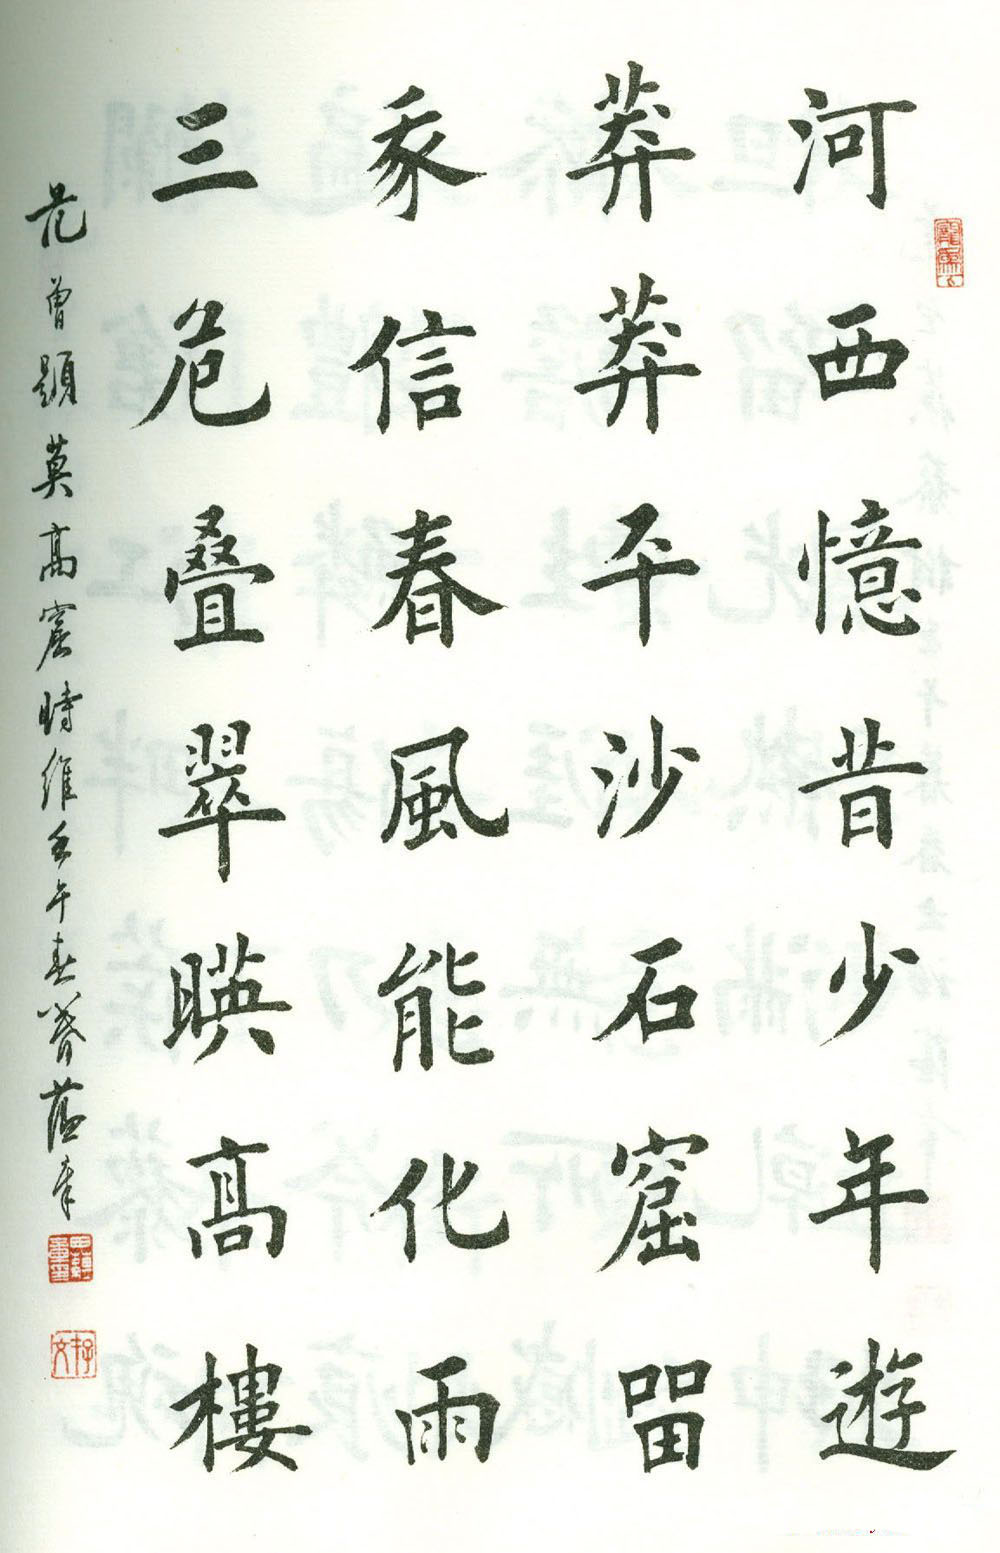 河西憶昔少年遊
莽莽平沙石窟留
我信春風能化雨
三危叠翠暎高樓
范曾題莫高窟時維壬午春蕴章